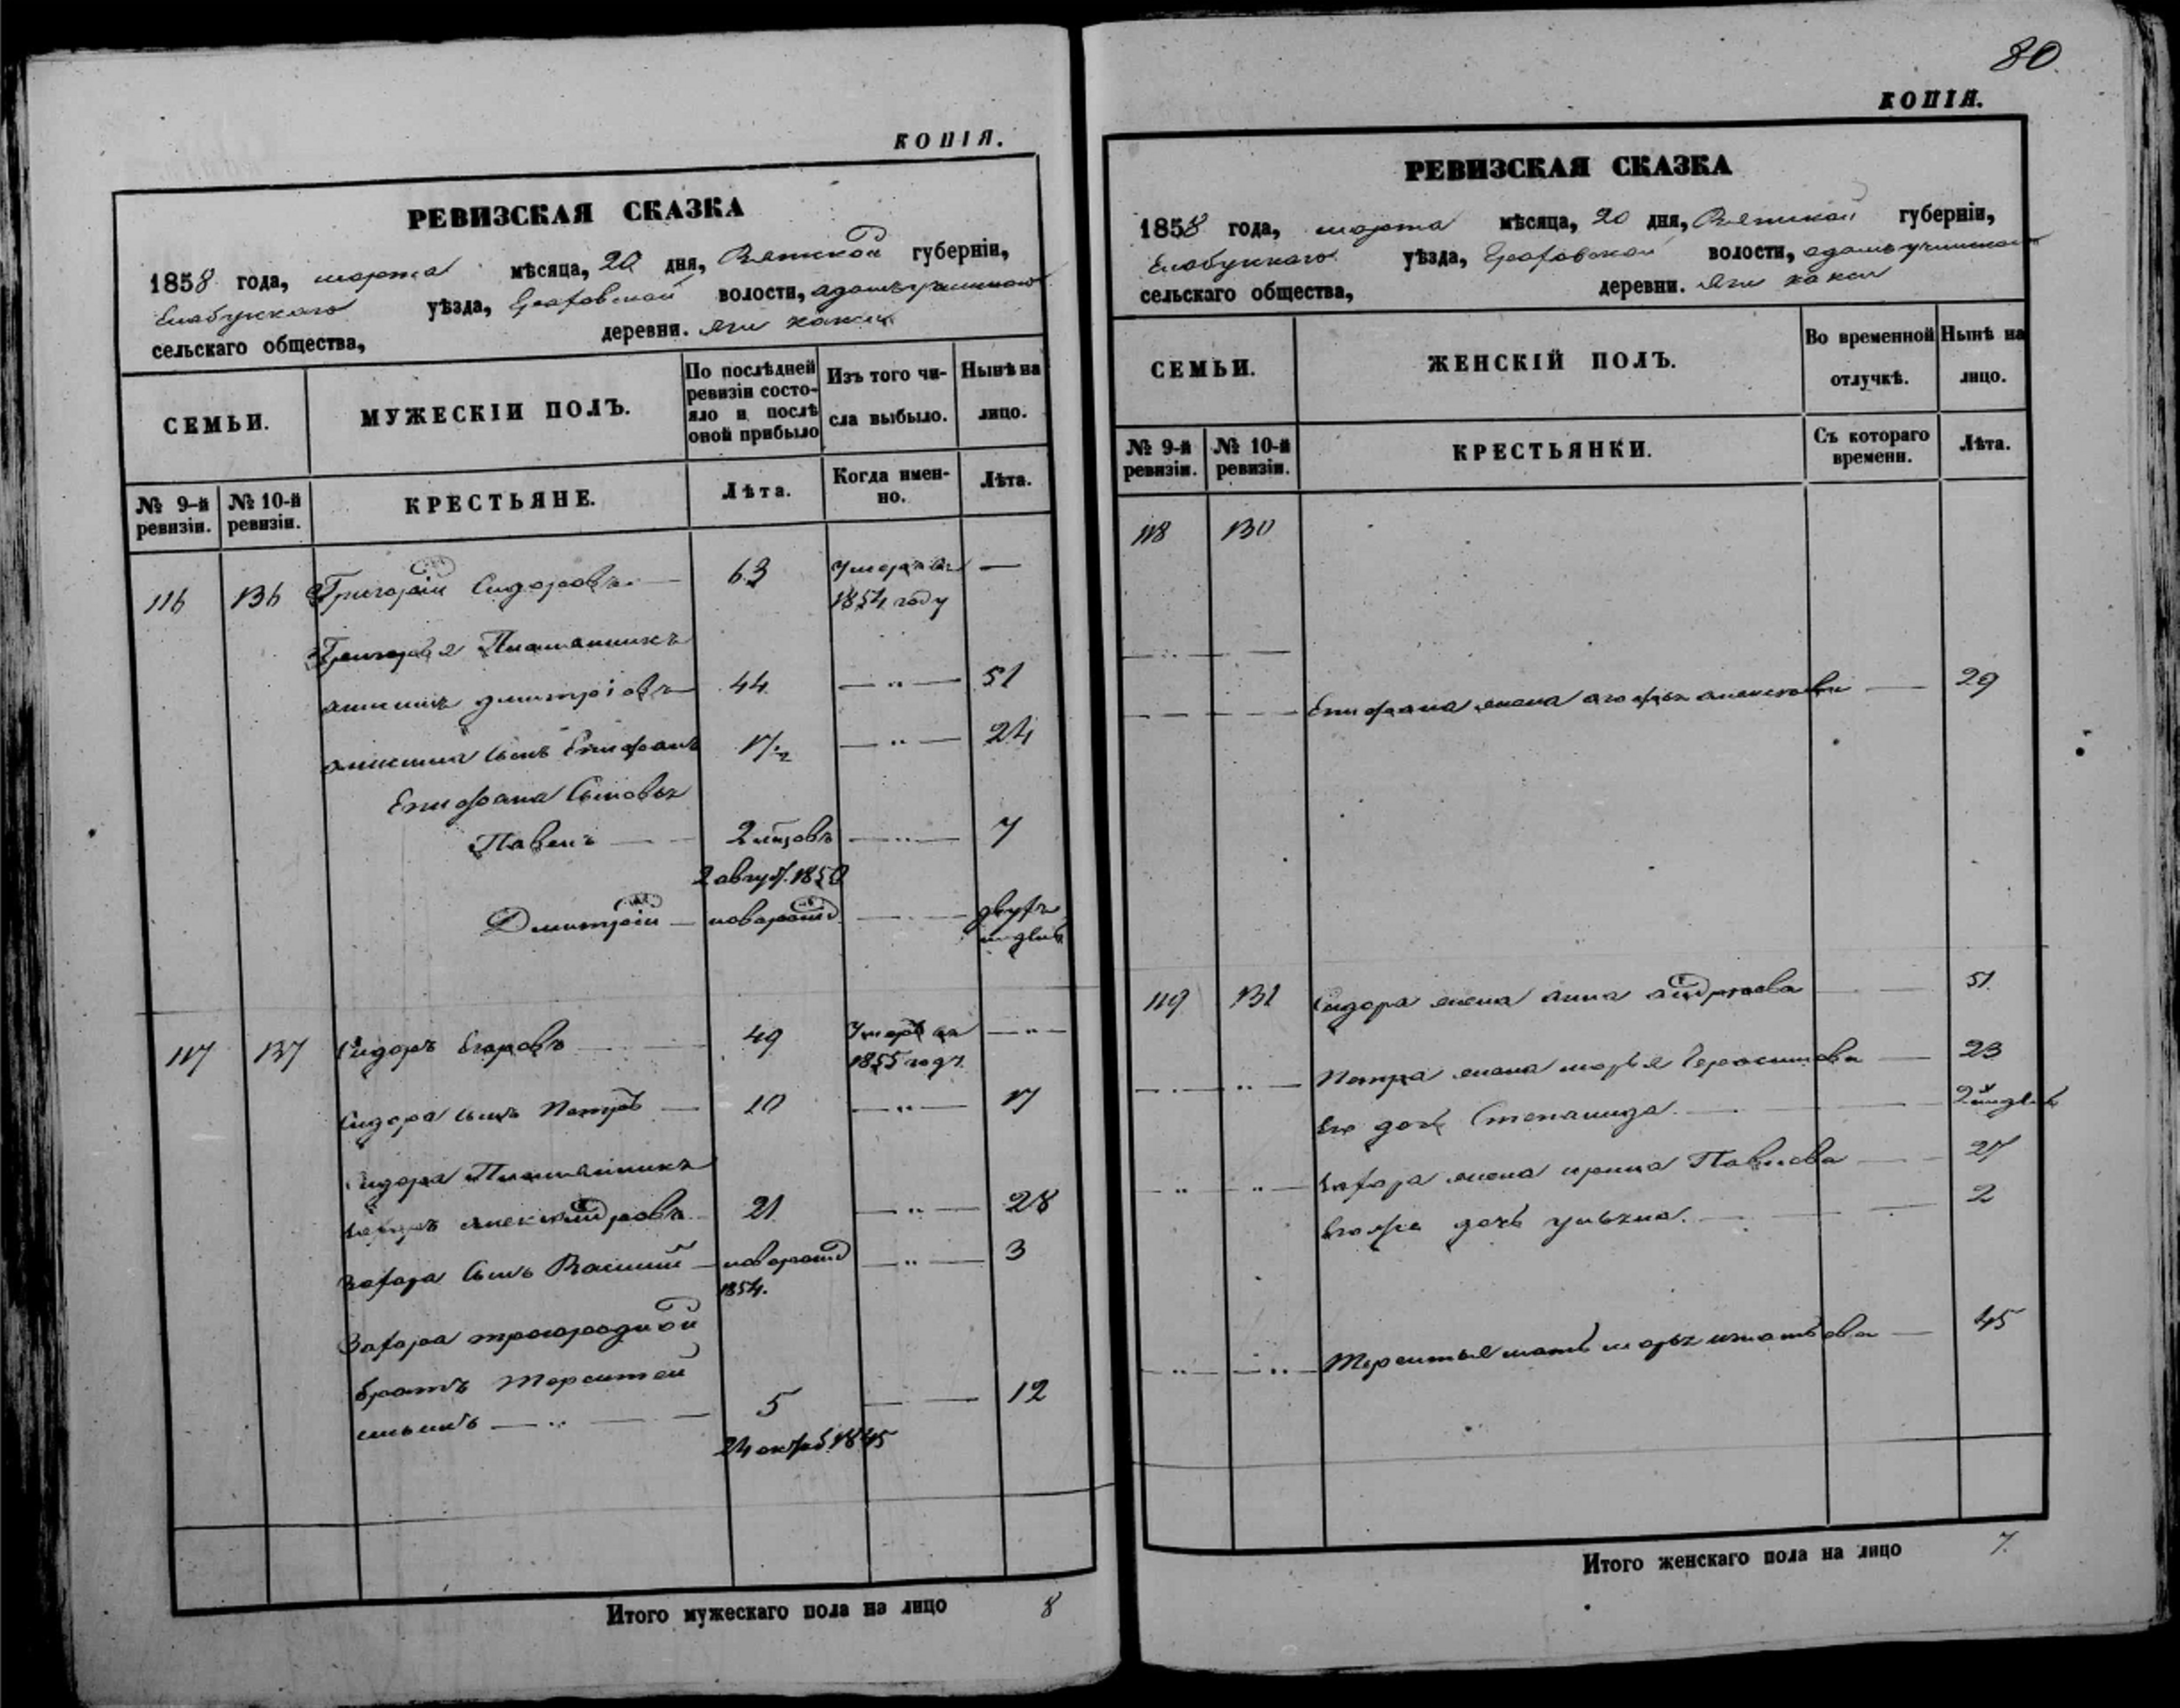 КОПІЯ.
РЕВИЗСКАЯ СКАЗКА
1858 года, марта мѣсяца, 20 дня, Вятской губерніи,
Елабужскаго уѣзда, Граховской волости,
сельскаго общества, деревни.
СЕМЬИ.
МУЖЕСКІЙ ПОЛЪ.
По послѣдней ревизіи состояло и послѣ оной прибыло
Изъ того числа выбыло.
Нынѣ на лицо.
№ 9-й ревизіи.
№ 10-й ревизіи.
КРЕСТЬЯНЕ.
Лѣта.
Когда именно.
Лѣта.
116 Григорій Сидоровъ — 63 Умеръ въ —
1854 году
Григорья Племянникъ
дмитріевъ 44 — „ — 51
сынъ Епифанъ 17½ — „ — 24
Епифана Сыновья
Павелъ — 2 мѣсяцовъ — „ — 7
2 август. 1850
Дмитрій — новорожд. — двухъ
недѣль
117 Сидоръ Егоровъ 49 Умеръ въ — „ —
1855 годъ
Сидора сынъ Петръ — 10 — „ — 17
Сидора Племянникъ
Захаръ александровъ 21 — „ — 28
Захара Сынъ Василій — новорожд — „ — 3
1854.
Захара троюродной
братъ Терентей
ильинъ — „ — 5 — 12
24 октяб. 1845
Итого мужескаго пола на лицо 8
80
КОПІЯ.
РЕВИЗСКАЯ СКАЗКА
1858 года, марта мѣсяца, 20 дня, Вятской губерніи,
Елабужскаго уѣзда, Граховской волости,
сельскаго общества, деревни.
СЕМЬИ.
ЖЕНСКІЙ ПОЛЪ.
Во временной отлучкѣ.
Нынѣ на лицо.
№ 9-й ревизіи.
№ 10-й ревизіи.
КРЕСТЬЯНКИ.
Съ котораго времени.
Лѣта.
118
Епифана жена алексѣева — 29
119 Сидора жена анна 51
Петра жена марья Герасимова — 23
Его дочь Степанида. — 2 недѣль
Захара жена ирина Павлова — 27
Егожъ дочь ульяна. — 2
Терентья мать марья игнатьева — 45
Итого женскаго пола на лицо 7.